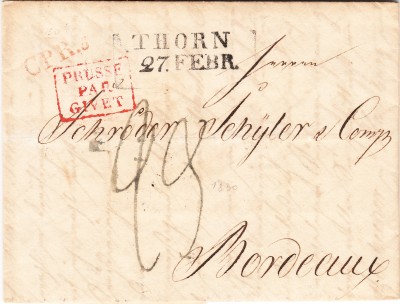 THORN
27. FEBR.
C.P.R.3
PRUSSE
PAR
GIVET
Herren
Schröder Schÿler & Comp
23
1830
Bordeaux